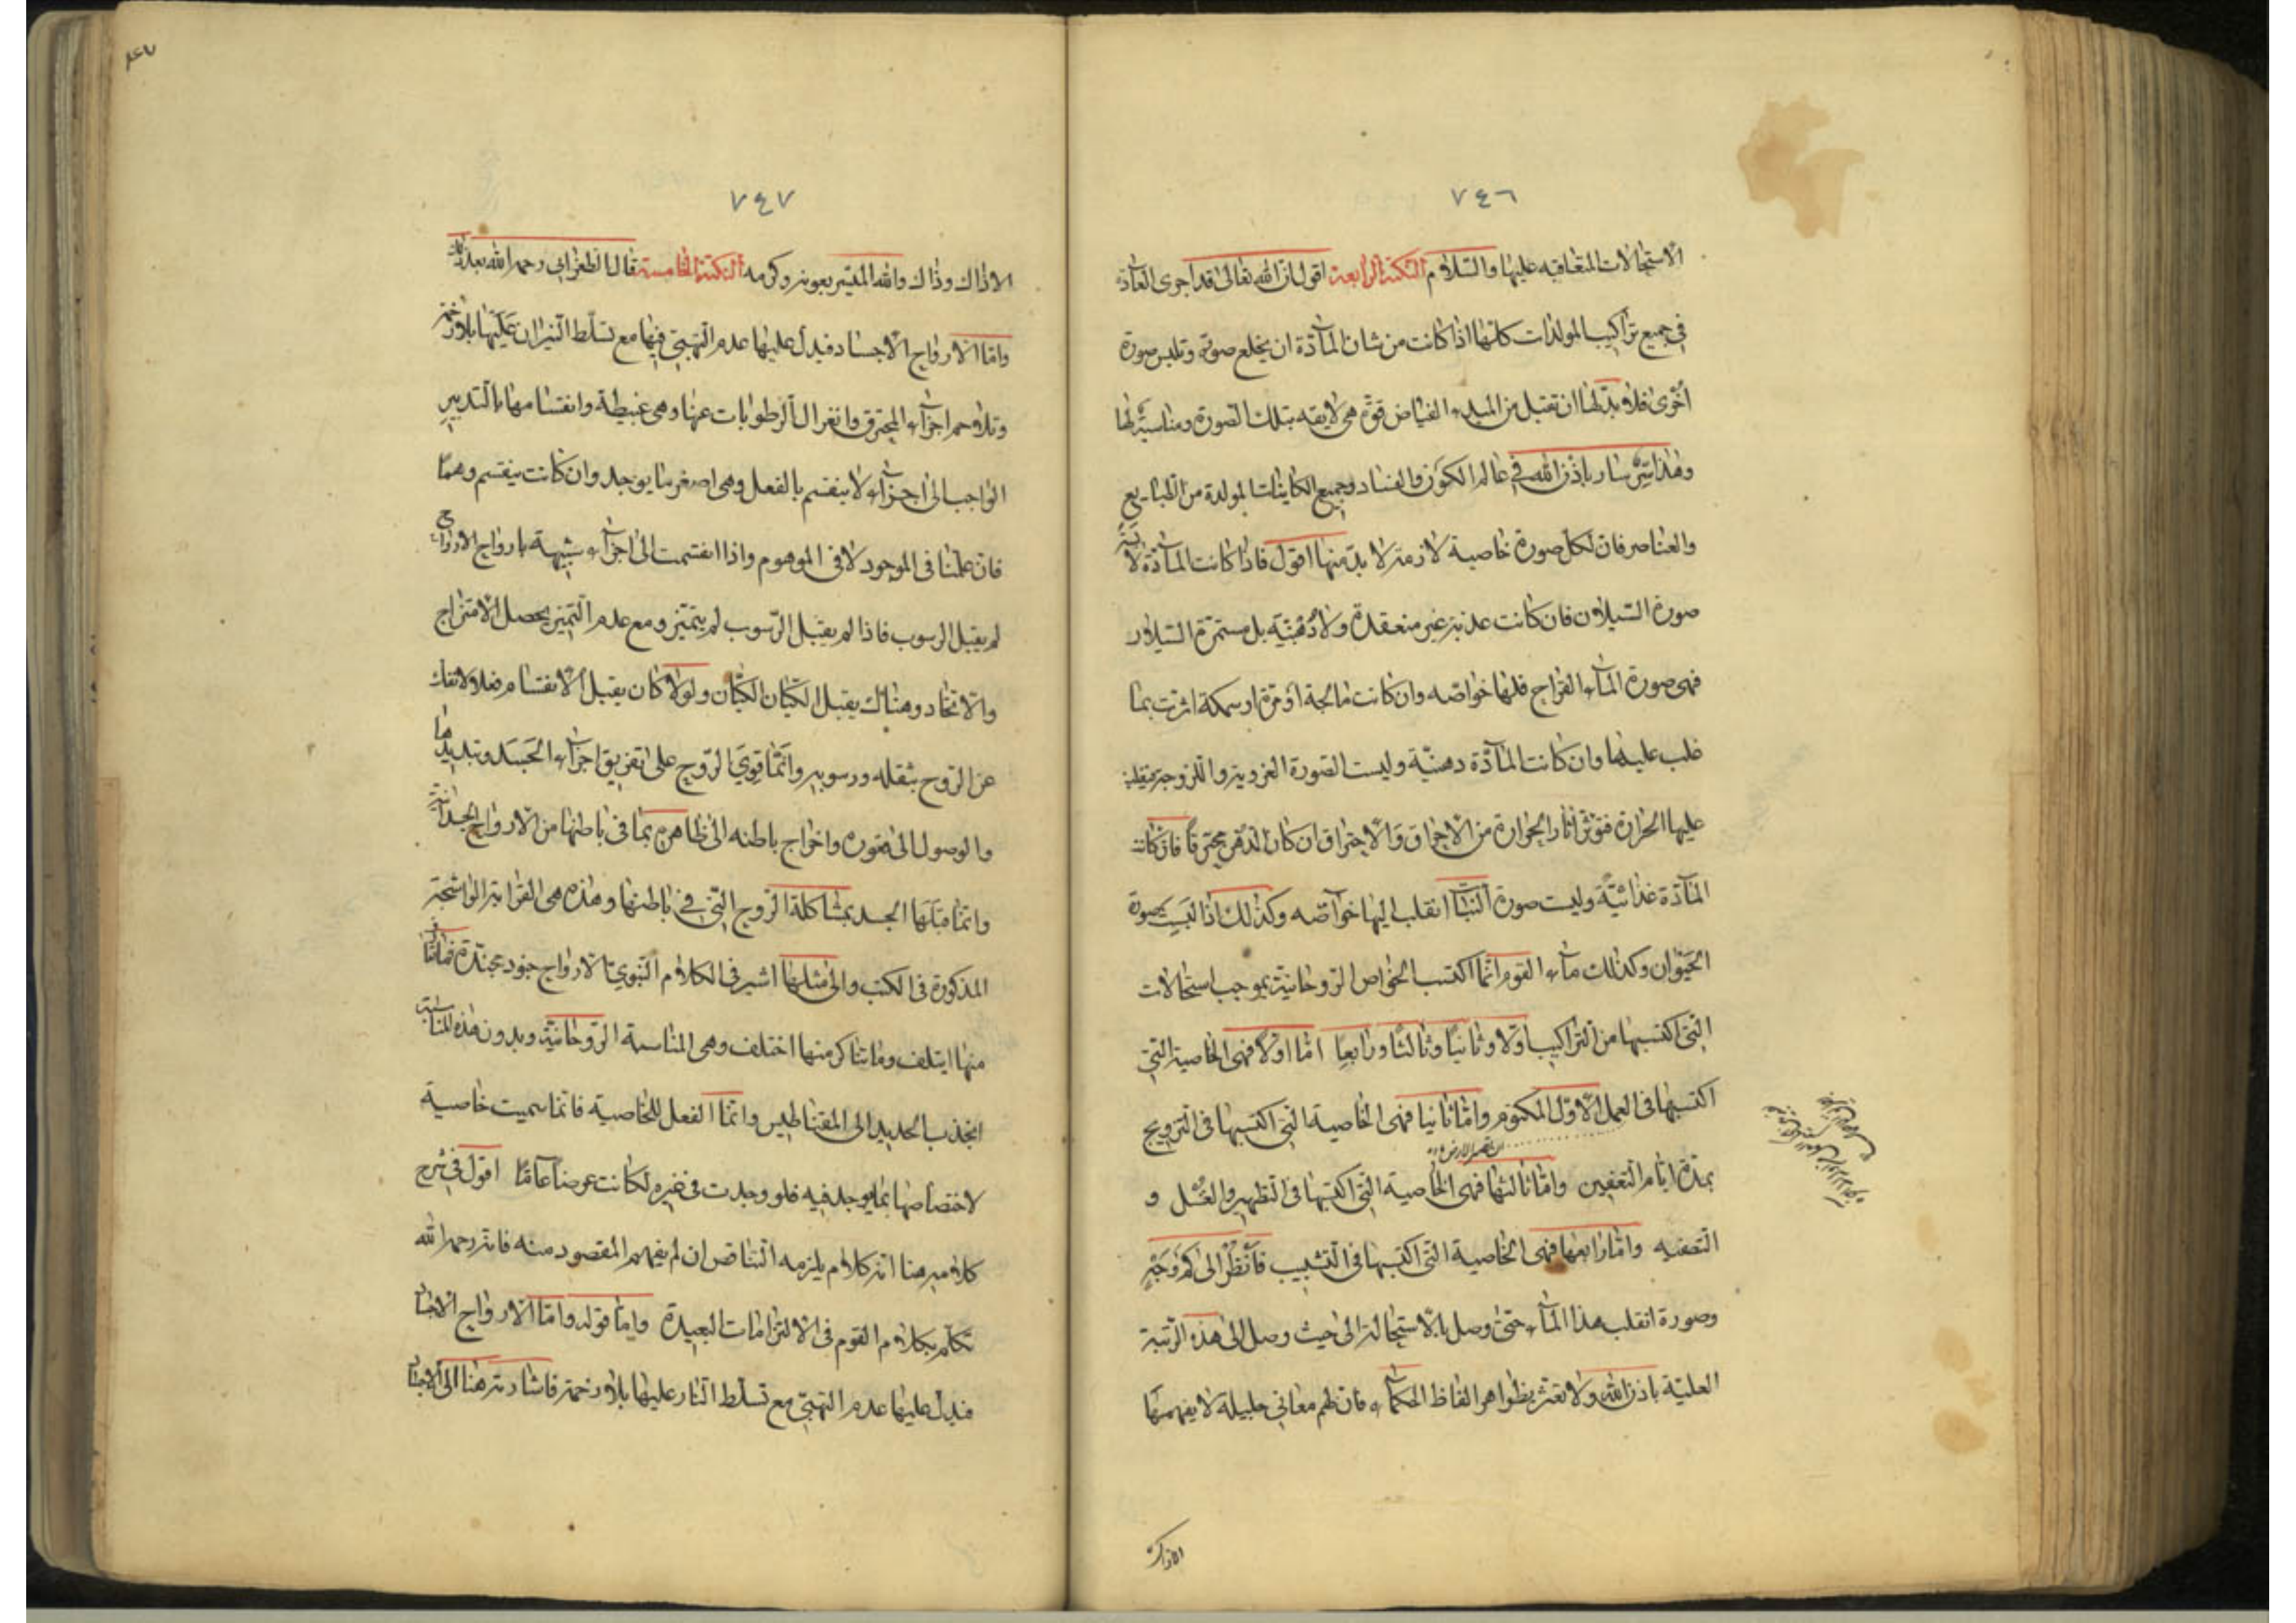 ٧٤٦
الاستحالات المتعاقبه عليها والسّلام النكتة الرابعة اقول ان الله تعالى قد اجرى العادة
في جميع تراكيب المولدات كلّها اذا كانت من شان المآدّة ان يخلع صورة وتلبس صورة
اُخرى فلا بدّ لها ان تقبل من المبدء الفياض قوّة هي لايقه بتلك الصورة ومناسبة لها
وهذا سِرّ سار باذن الله في عالم الكون والفساد وجميع الكاينات المولدة من الطبايع
والعناصر فان لكل صورة خاصية لازمة لا بدّ منها اقول فاذا كانت المآدّة لابسة
صورة السّيلان فان كانت عذبة غير منعقدة ولا دُهنيّه بل مستمرّة السّيلان
فهى صورة المآء القراح فلها خواصّه وان كانت مالحة او مرّة او سمكة اثرت بما
غلب عليها وان كانت المآدّة دهنيّة وليست الصّورة الغروية واللزوجة
عليها الحرارة فتؤثر اثار الحرارة من الاحراق والاحتراق ان كان الدهن محترقاً فان كانت
المآدّة غذائيّة ولبست صورة النبات انقلب اليها خوآصّه وكذلك اذا لبست صورة
الحَيَوان وكذلك مآء القوم انّما اكتسب الخواص الرّوحانيّة بموجب استحالات
الّتى اكتسبها من التراكيب اوّلا وثانيًا وثالثًا ورابعًا امّا اوّلا فهى الخاصية التي
اكتسبها في العمل الاوّل المكتوم وامّا ثانيا فهى الخاصية التي اكتسبها في التزويج
بمدّة ايّام التعفين وامّا ثالثها فهى الخاصية التي اكتسبها في التطهير والغَسْل و
التصفيه وامّا رابعها فهى الخاصية التي اكتسبها في التشبيب فانظر الى كم وَجْهٍ
وصورة انقلب هذا المآء حتى وصل بالاستحالة الى حيث وصل الى هذه الرّتبة
العليّة باذن الله ولا تغتر بظواهر الفاظ الحكمآء فان لهم معاني جليلة لا يفهمها
٧٤٧
الا ذاك وذاك والله الميسّر بعونه وكرمه النكتة الخامسة قال الطغرائى رحمه الله بعد ذلك
وامّا الارواح الاجساد فيدل عليها عدم التهبّي فيها مع تسلّط النيران عليها بلا وزخمة
وتلاحم اجزآء المحترق وانغزال الرطوبات عنها وهى عبيطة وانقسامها بالتدبير
الواجب الى اجزآء لا ينقسم بالفعل وهى اصغر ما يوجد وان كانت ينقسم وهمًا
فان علمنا في الموجود لا في الموهوم واذا انقسمت الى اجزآء شبيهة بارواح الارواح
لم يقبل الرسوب فاذا لم يقبل الرّسوب لم يتميّز ومع عدم التّميّز يحصل الامتزاج
والاتحاد وهناك يقبل الكيان الكيان ولولا كان يقبل الانقسام فعلا لانفك
عن الرّوح بثقله ورسوبه وانّما قوِيَ الرّوح على تفريق اجزآء الجَسَد وتبديدها
والوصول الى قعوره واخراج باطنه الى ظاهره بما في باطنها من الارواح
وانّما قبلَها الجسد بمشاكلة الرّوح الّتي في باطنها وهذه هي القرابة الواشجة
المذكورة في الكتب والى مثلها اشير في الكلام النّبويّ الارواح جنود مجنّدة فما تعارف
منها ايتلف وما تناكر منها اختلف وهى المناسبة الرّوحانيّة وبدون هذه المناسبة
انجذب الحديد الى المقناطيس وانّما الفعل للخاصية فانما سميت خاصية
لاختصاصها بما يوجد فيه فلو وجدت في غيره لكانت عرضاً عامًا اقول في شرح
كلامه هنا انه كلام يلزمه التناقض ان لم يفهم المقصود منه فانه رحمه الله
تكلم بكلام القوم في الالتزامات البعيدة وامّا قوله وامّا الارواح الاجساد
فيدل عليها عدم التهبّي مع تسلّط النّار عليها بلا وزخمة فاشارته هنا الى الاجساد